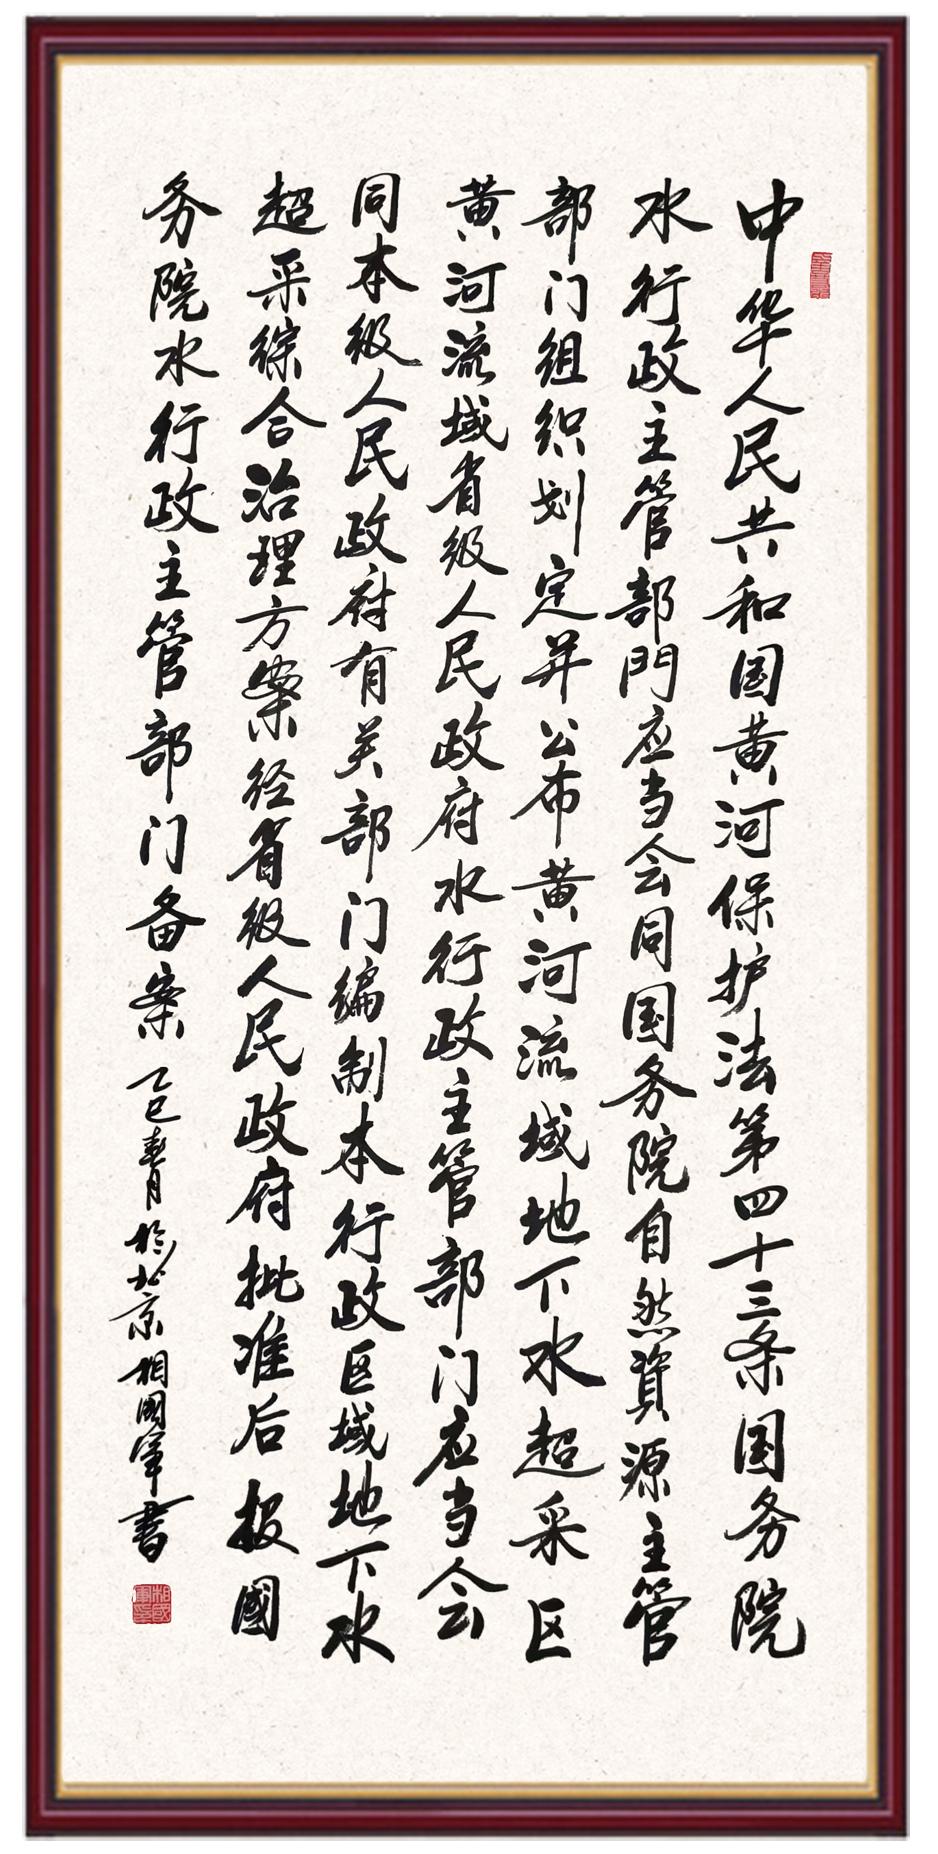 中华人民共和国黄河保护法第四十三条国务院
水行政主管部門应当会同国务院自然資源主管
部门组织划定并公布黄河流域地下水超采区
黄河流域省级人民政府水行政主管部门应当会
同本级人民政府有关部门编制本行政区域地下水
超采综合治理方案经省级人民政府批准后报國
务院水行政主管部门备案
乙巳春月於北京相國軍書
相國軍印